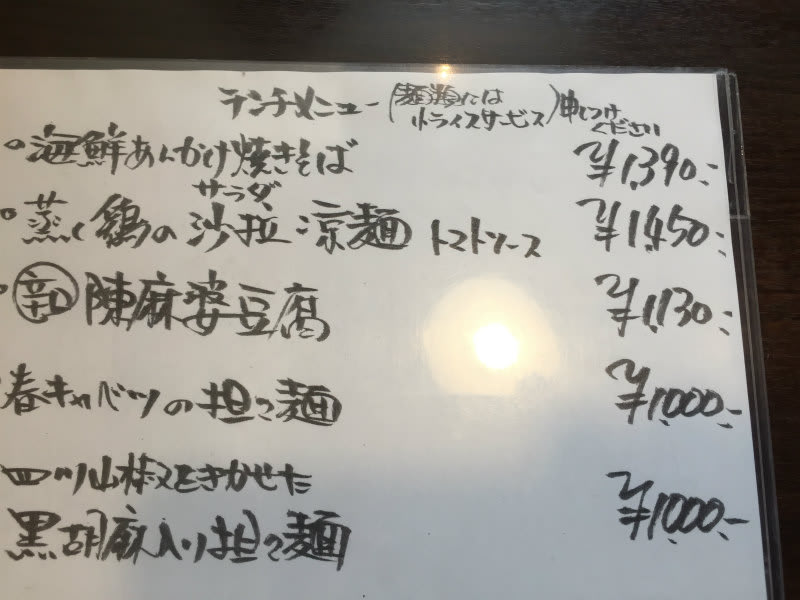 ランチメニュー (麺類には
小ライスサービス) 申しつけ
ください
○海鮮あんかけ焼きそば ¥1,390.-
サラダ
○蒸し鶏の沙拉涼麺 トマトソース ¥1,450.-
辛口 陳麻婆豆腐 ¥1,130.-
春キャベツの担々麺 ¥1,000.-
四川山椒をきかせた
黒胡麻入り担々麺 ¥1,000.-